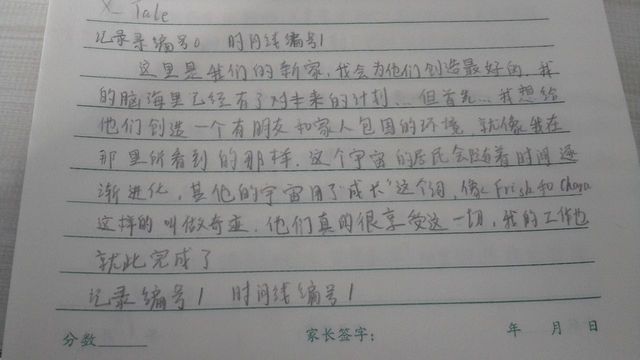 X-Tale
记录录编号0 时间线编号1
这里是我们的新家,我会为他们创造最好的,我
的脑海里已经有了对未来的计划...但首先...我想给
他们创造一个有朋友和家人包围的环境,就像我在
那里所看到的那样.这个宇宙的居民会随着时间逐
渐进化,其他的宇宙用了"成长"这个词,像Frish和Chara
这样的叫做奇迹.他们真的很享受这一切,我的工作也
就此完成了
记录编号1 时间线编号1
分数
家长签字:
年 月 日